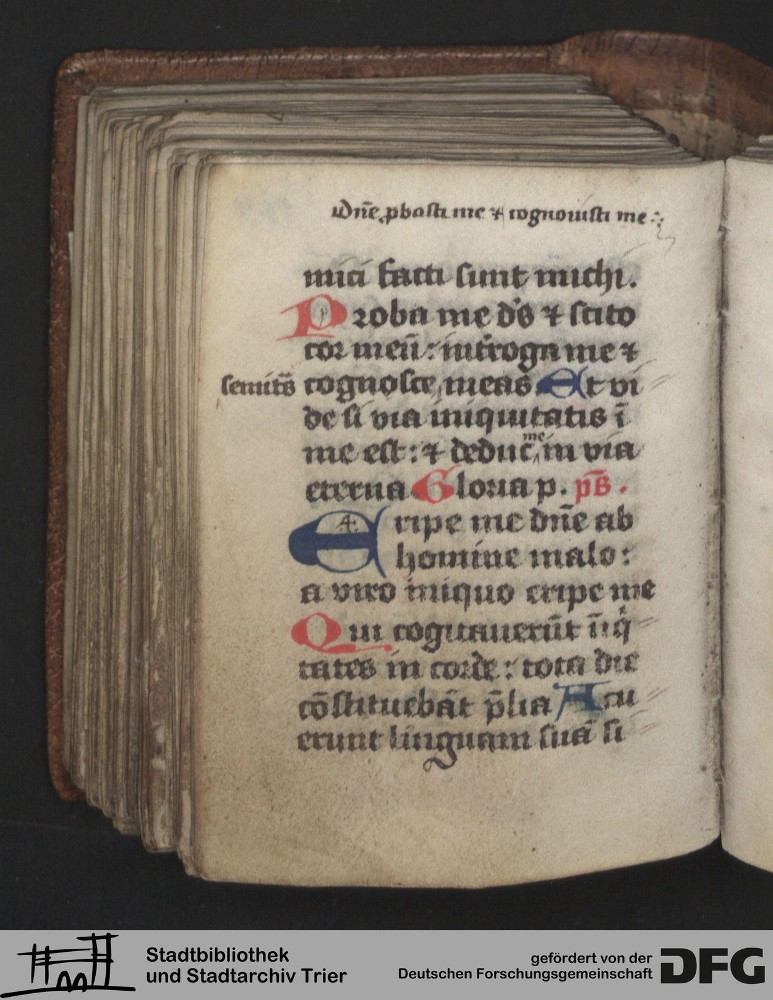 Dn̄e ꝓbasti me ⁊ cognouisti me
mici facti sunt michi.
Proba me dˀs ⁊ scito
cor meū : int̾roga me ⁊
semitˀs cognosce meas Et vi
de si via iniquitatis ī
me est : ⁊ deduc̄ me in via
eterna Gloria p. pˢ̄.
Eripe me dn̄e ab
homine malo :
a viro iniquo eripe me
Qui cogitauerūt īiqͥ
tates in corde : tota die
cōstituebāt p̄lia Acu
erunt linguam suā si
Stadtbibliothek
und Stadtarchiv Trier
gefördert von der
Deutschen Forschungsgemeinschaft
DFG